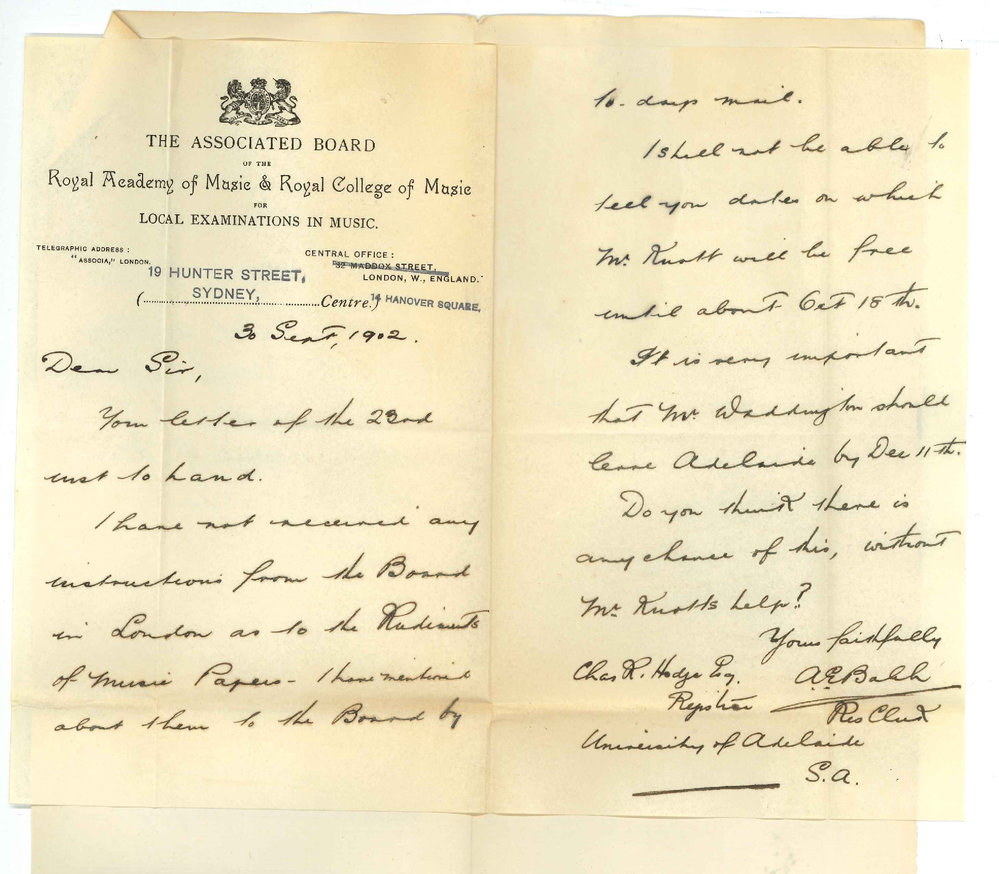 THE ASSOCIATED BOARD
OF THE
Royal Academy of Music & Royal College of Music
FOR
LOCAL EXAMINATIONS IN MUSIC.
TELEGRAPHIC ADDRESS:
"ASSOCIA," LONDON.
CENTRAL OFFICE:
32 MADDOX STREET,
LONDON, W., ENGLAND.
19 HUNTER STREET,
SYDNEY,
(.................................Centre.)
14 HANOVER SQUARE,
30 Sept, 1902.
Dear Sir,
Your letter of the 23rd
inst to hand.
I have not received any
instructions from the Board
in London as to the Rudiments
of Music Papers - I have mentioned
about them to the Board by
to-days mail.
I shall not be able to
tell you dates on which
Mr. Knott will be free
until about Oct 18th.
It is very important
that Mr. Waddington should
leave Adelaide by Dec 11th.
Do you think there is
any chance of this, without
Mr. Knotts help?
Yours faithfully
Chas R. Hodge Esq.
A.E.
Registrar
Res Clerk
University of Adelaide
S.A.